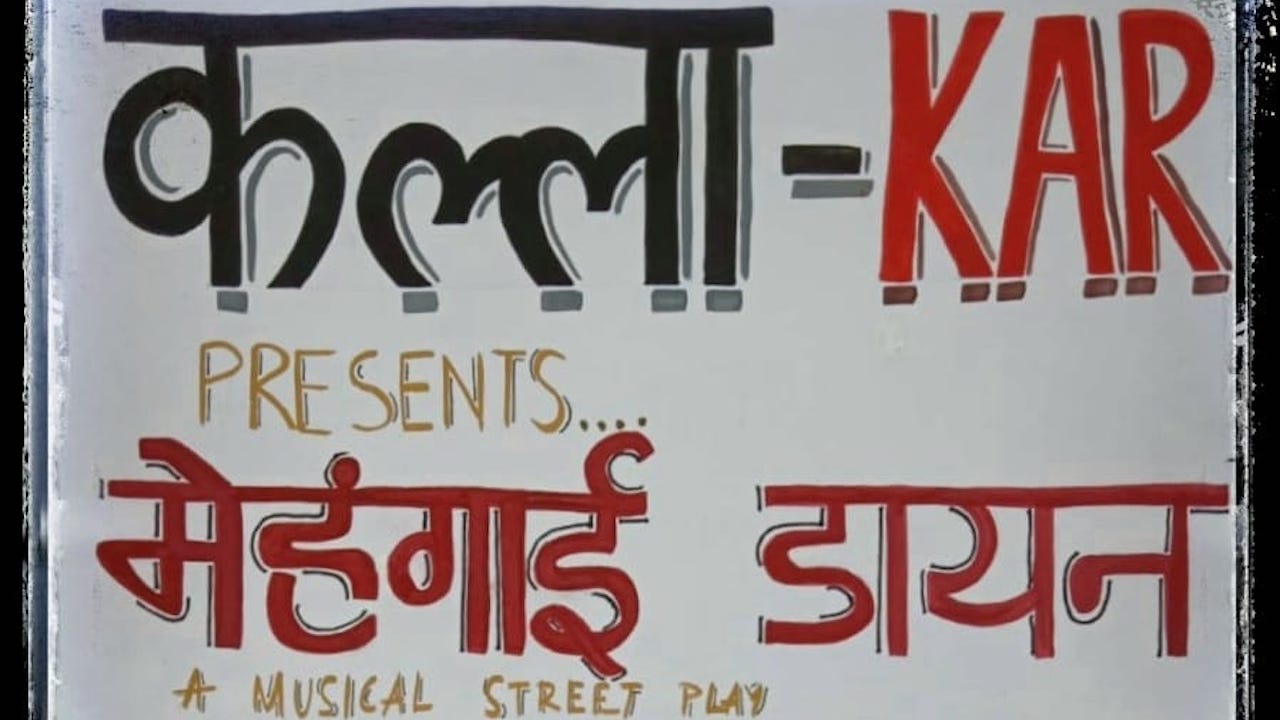 कल्ला-KAR
PRESENTS....
मेहंगाई डायन
A MUSICAL STREET PLAY